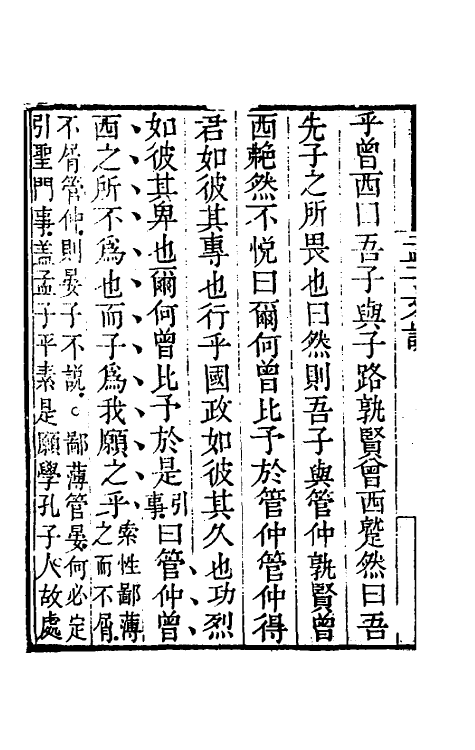 乎曾西曰吾子與子路孰賢曾西蹵然曰吾
先子之所畏也曰然則吾子與管仲孰賢曾
西艴然不悅曰爾何曾比予於管仲管仲得
君如彼其專也行乎國政如彼其久也功烈
如彼其卑也爾何曾比予於是引事曰管仲曾
西之所不爲也而子爲我願之乎索性鄙薄之而不屑
不屑管仲則晏子不説。鄙薄管晏何必定
引聖門事蓋孟子平素是願學孔子人故處